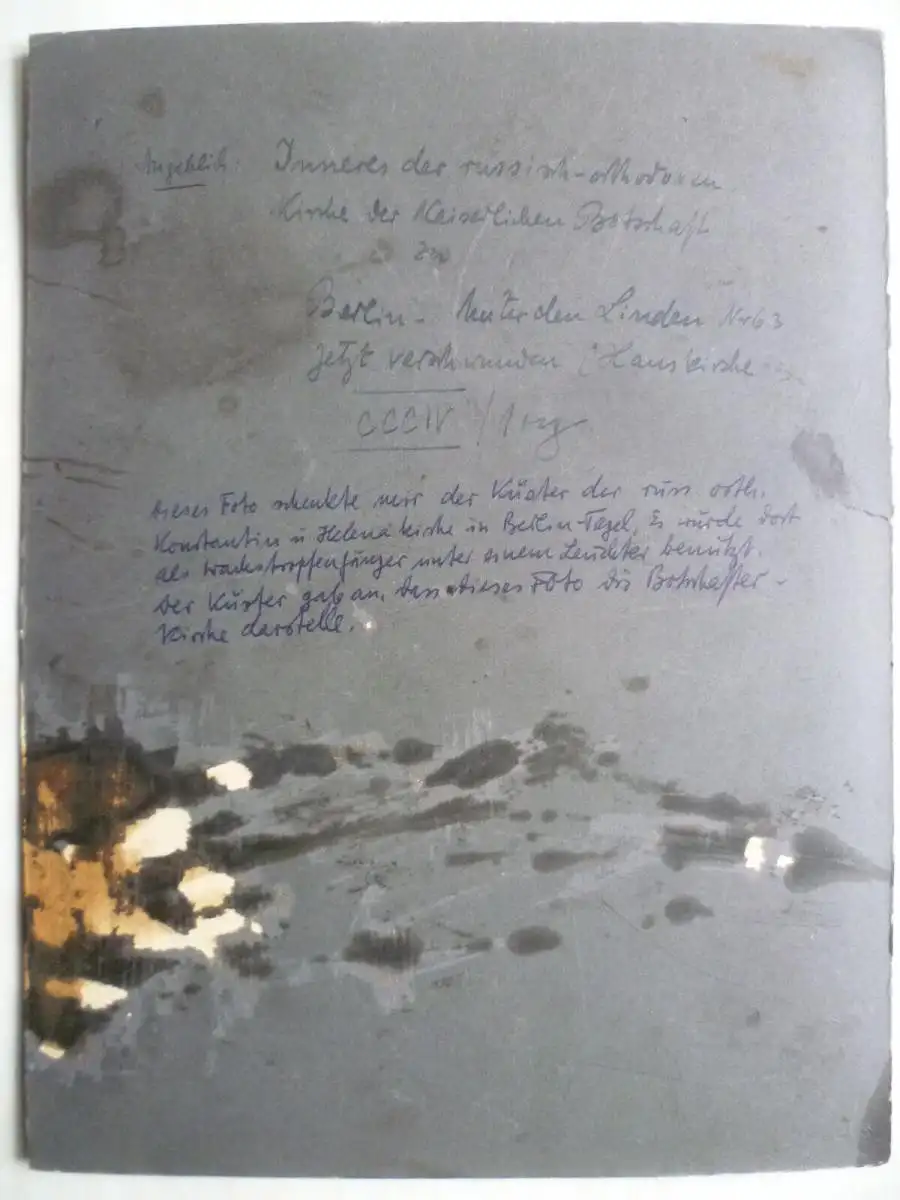 Angeblich: Inneres der russisch-orthodoxen
Kirche der Kaiserlichen Botschaft
zu
Berlin - Unter den Linden Nr 63
Jetzt verschwunden (Hauskirche
CCCIV /
Dieses Foto schenkte mir der Küster der russ orth.
Konstantin u Helena kirche in Berlin-Tegel. Es wurde dort
als Wachstropfenfänger unter einem Leuchter benützt.
Der Küster gab an, dass dieses Foto die Botschafter-
kirche darstelle.